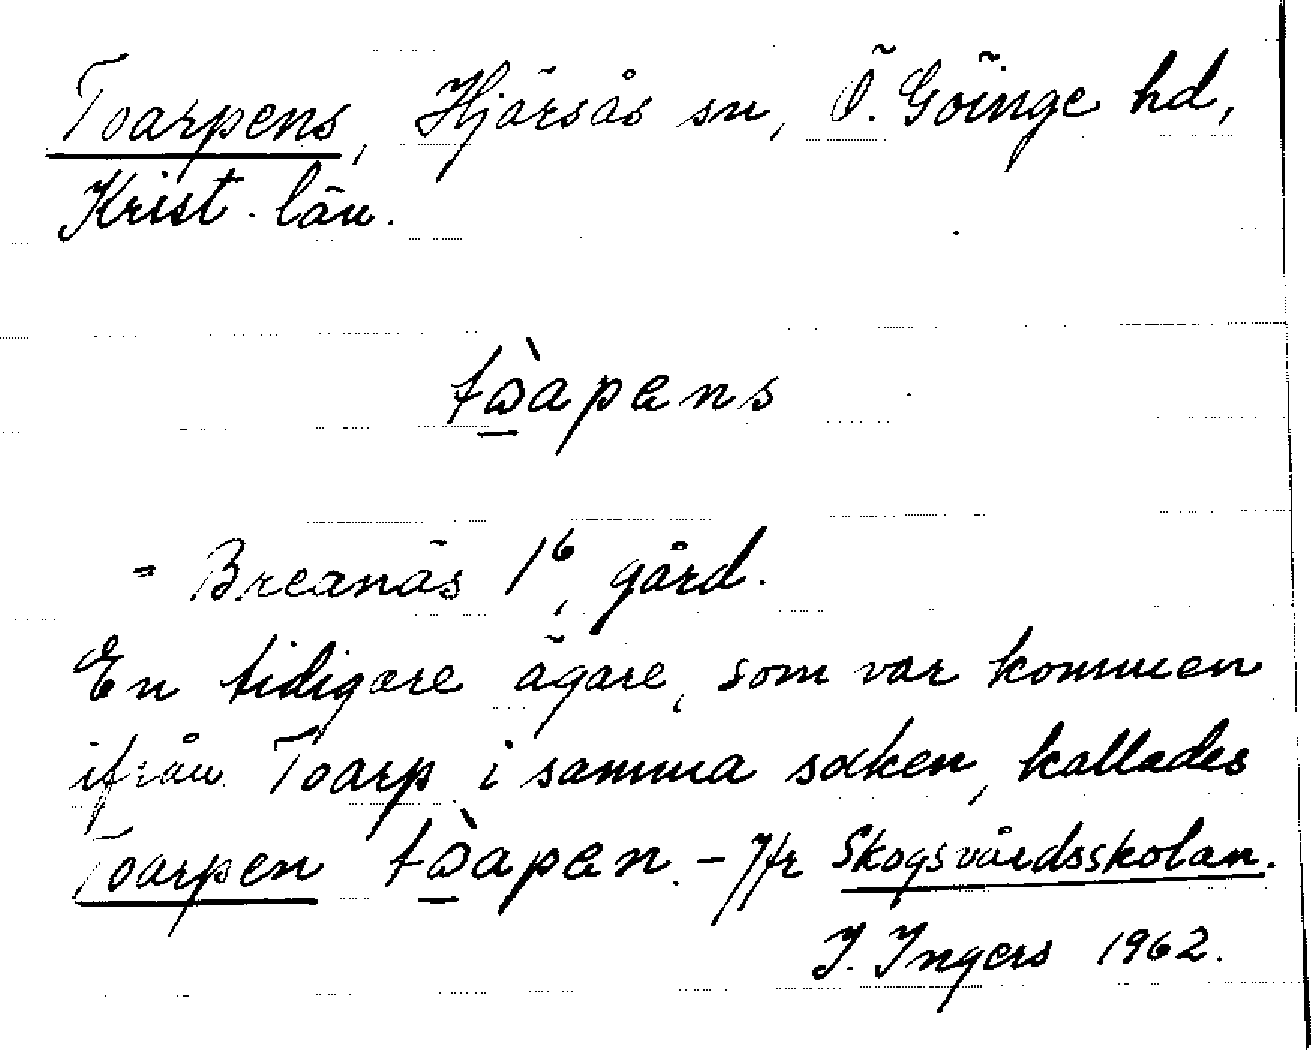 Toarpens, Hjärsås sn, Ö. Göinge hd,
Krist. län.
tὼ̱apens
= Breanäs 1⁶, gård.
En tidigare ägare, som var kommen
ifrån Toarp i samma socken, kallades
Toarpen tὼ̱apen. – Jfr Skogsvårdsskolan.
I. Ingers 1962.